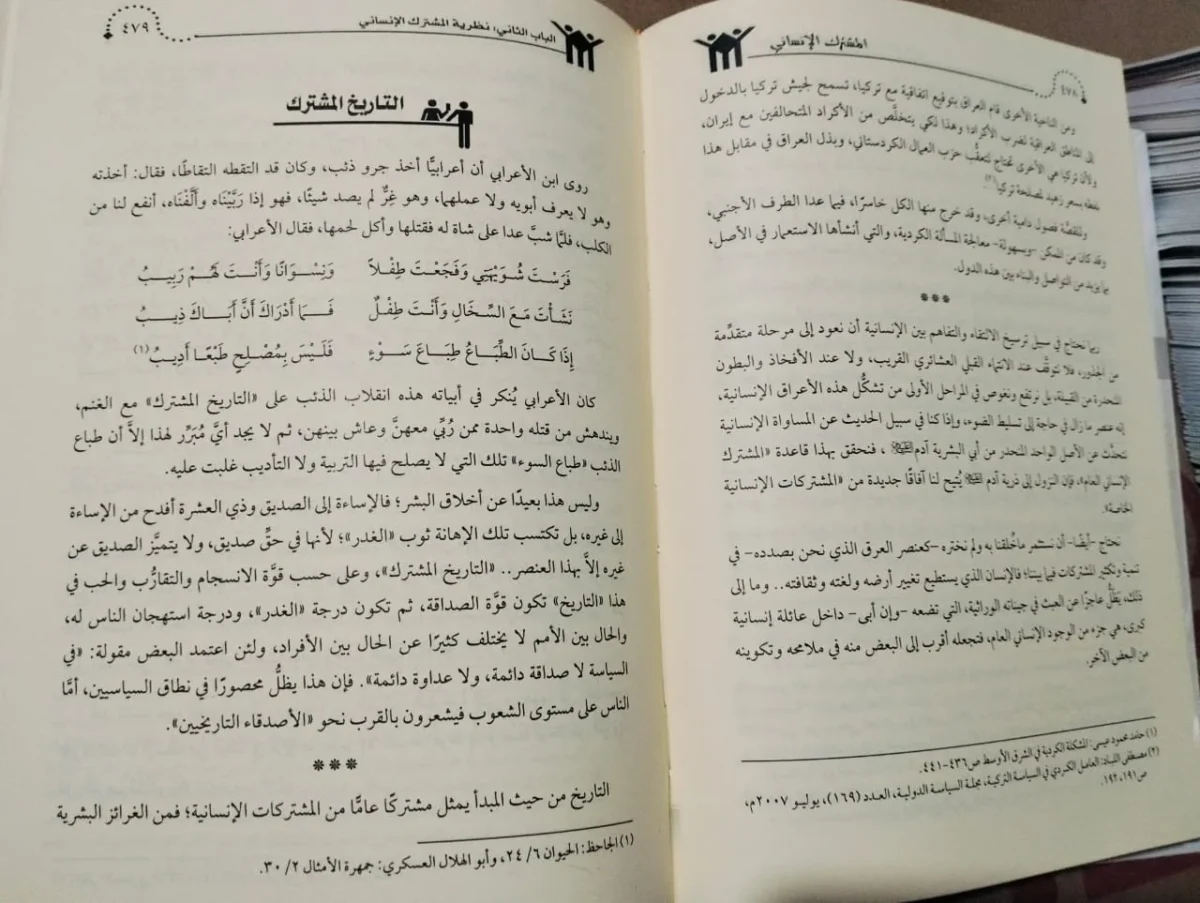 المشترك الإنساني
٤٧٨
ومن الناحية الأخرى قام العراق بتوقيع اتفاقية مع تركيا، تسمح لجيش تركيا بالدخول
إلى المناطق العراقية لضرب الأكراد؛ وهذا لكي يتخلَّص من الأكراد المتحالفين مع إيران،
ولأن تركيا هي الأخرى تحتاج لتعقُّب حزب العمال الكردستاني، وبذل العراق في مقابل هذا
نفطه بسعر زهيد لمصلحة تركيا(٢).
وللقصَّة فصول دامية أخرى، وقد خرج منها الكل خاسرًا، فيما عدا الطرف الأجنبي،
وقد كان من الممكن -وبسهولة- معالجة المسألة الكردية، والتي أنشأها الاستعمار في الأصل،
بما يزيد من التواصل والبناء بين هذه الدول.
***
ربما نحتاج في سبيل ترسيخ الالتقاء والتفاهم بين الإنسانية أن نعود إلى مرحلة متقدِّمة
من الجذور، فلا نتوقَّف عند الانتماء القبلي العشائري القريب، ولا عند الأفخاذ والبطون
المنحدرة من القبيلة، بل نرتفع ونغوص في المراحل الأولى من تشكُّل هذه الأعراق الإنسانية،
إنه عنصر ما زال في حاجة إلى تسليط الضوء، وإذا كنا في سبيل الحديث عن المساواة الإنسانية
نتحدَّث عن الأصل الواحد المنحدر من أبي البشرية آدم، فنحقق بهذا قاعدة «المشترك
الإنساني العام»، فإن النزول إلى ذرية آدم يُتيح لنا آفاقًا جديدة من «المشتركات الإنسانية
الخاصة».
نحتاج -أيضًا- أن نستثمر ما خُلقنا به ولم نختره -كعنصر العرق الذي نحن بصدده- في
تنمية وتكثير المشتركات فيما بيننا؛ فالإنسان الذي يستطيع تغيير أرضه ولغته وثقافته.. وما إلى
ذلك، يَظَلُّ عاجزًا عن العبث في جيناته الوراثية، التي تضعه -وإن أبى- داخل عائلة إنسانية
كبرى، هي جزء من الوجود الإنساني العام، فتجعله أقرب إلى البعض منه في ملامحه وتكوينه
من البعض الآخر.
(١) حامد محمود عيسى: المشكلة الكردية في الشرق الأوسط ص٤٣٦-٤٤١.
(٢) مصطفى اللباد: العامل الكردي في السياسة التركية، مجلة السياسة الدولية، العدد (١٦٩)، يوليو ٢٠٠٧م،
ص١٩١، ١٩٢.
الباب الثاني: نظرية المشترك الإنساني
٤٧٩
التاريخ المشترك
روى ابن الأعرابي أن أعرابيًّا أخذ جرو ذئب، وكان قد التقطه التقاطًا، فقال: أخذته
وهو لا يعرف أبويه ولا عملهما، وهو غِرٌّ لم يصد شيئًا، فهو إذا رَبَّيْنَاه وأَلَّفْنَاه، أنفع لنا من
الكلب، فلمَّا شبَّ عدا على شاة له فقتلها وأكل لحمها، فقال الأعرابي:
فَرَسْتَ شُوَيْهَتِي وَفَجَعْتَ طِفْلاً وَنِسْوَانًا وَأَنْتَ لَهُمْ رَبِيبُ
نَشَأْتَ مَعَ السِّخَالِ وَأَنْتَ طِفْلٌ فَمَا أَدْرَاكَ أَنَّ أَبَاكَ ذِيبُ
إِذَا كَانَ الطِّبَاعُ طِبَاعَ سَوْءٍ فَلَيْسَ بِمُصْلِحٍ طَبْعًا أَدِيبُ(١)
كان الأعرابي يُنكر في أبياته هذه انقلاب الذئب على «التاريخ المشترك» مع الغنم،
ويندهش من قتله واحدة ممن رُبِّي معهنَّ وعاش بينهن، ثم لا يجد أيَّ مُبَرِّر لهذا إلاَّ أن طباع
الذئب «طباع السوء» تلك التي لا يصلح فيها التربية ولا التأديب غلبت عليه.
وليس هذا بعيدًا عن أخلاق البشر؛ فالإساءة إلى الصديق وذي العشرة أفدح من الإساءة
إلى غيره، بل تكتسب تلك الإهانة ثوب «الغدر»؛ لأنها في حقِّ صديق، ولا يتميَّز الصديق عن
غيره إلاَّ بهذا العنصر.. «التاريخ المشترك»، وعلى حسب قوَّة الانسجام والتقارُّب والحب في
هذا «التاريخ» تكون قوَّة الصداقة، ثم تكون درجة «الغدر»، ودرجة استهجان الناس له،
والحال بين الأمم لا يختلف كثيرًا عن الحال بين الأفراد، ولئن اعتمد البعض مقولة: «في
السياسة لا صداقة دائمة، ولا عداوة دائمة». فإن هذا يظلُّ محصورًا في نطاق السياسيين، أمَّا
الناس على مستوى الشعوب فيشعرون بالقرب نحو «الأصدقاء التاريخيين».
***
التاريخ من حيث المبدأ يمثل مشتركًا عامًّا من المشتركات الإنسانية؛ فمن الغرائز البشرية
(١) الجاحظ: الحيوان ٦/ ٢٤، وأبو الهلال العسكري: جمهرة الأمثال ٢/ ٣٠.